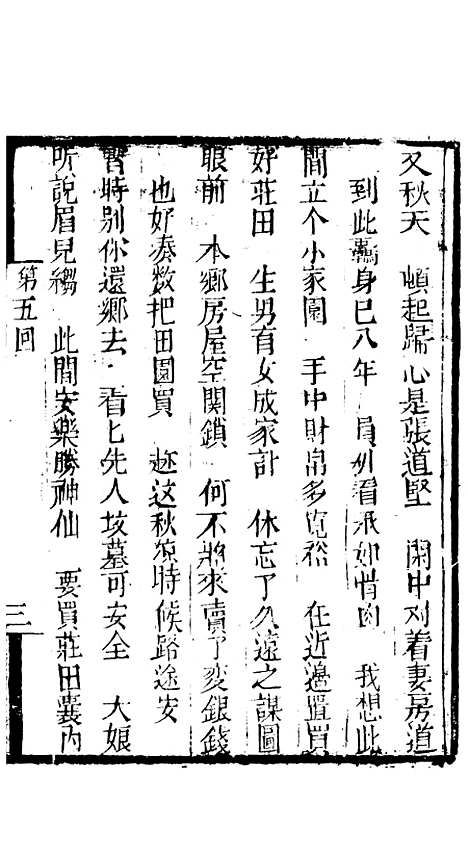 又秋天　頓起歸心是張道堅　閑中对着妻房道
到此驀身已八年　員外看承如情肉　我想此
間立个小家園　手中財帛多寬裕　在近邊置買
好莊田　生男育女成家計　休忘了久遠之謀圖
眼前　本鄉房屋空関鎖　何不將來賣了変銀錢
也好湊数把田園買　趂这秋凉時候路途安
暫時别你還鄉去　看匕先人坟墓可安全　大娘
听說眉児縐　此間安樂勝神仙　要買莊田囊內
第五回　三